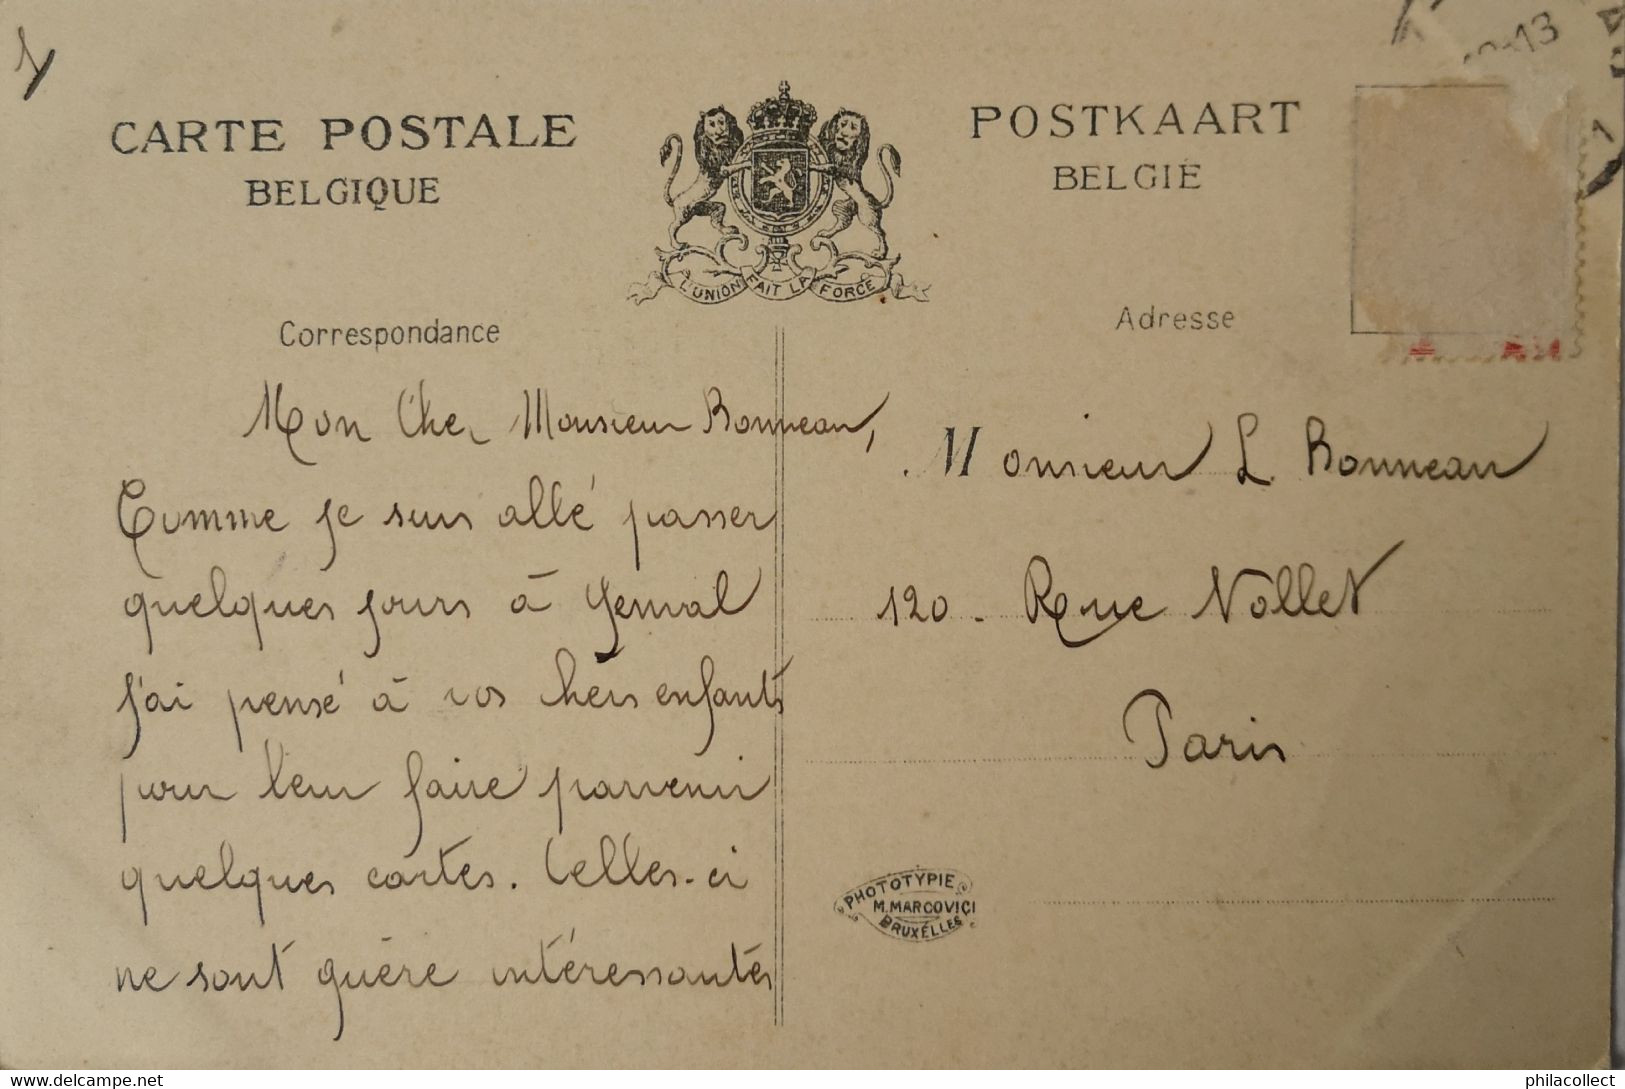 1
CARTE POSTALE
BELGIQUE
L'UNION FAIT LA FORCE
POSTKAART
BELGIË
13
Correspondance
Adresse
Mon Cher Monsieur Bonneau,
Comme je suis allé passer
quelques jours à Genval
j'ai pensé à vos chers enfants
pour leur faire parvenir
quelques cartes. Celles-ci
ne sont guère intéressantes
Monsieur L. Bonneau
120 - Rue Nollet
Paris
PHOTOTYPIE
M. MARCOVICI
BRUXELLES
www.delcampe.net
philacollect